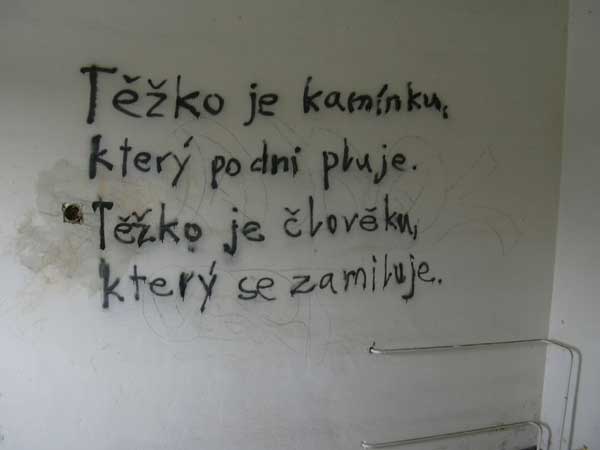 Těžko je kamínku,
který podni pluje.
Těžko je člověku,
který se zamiluje.